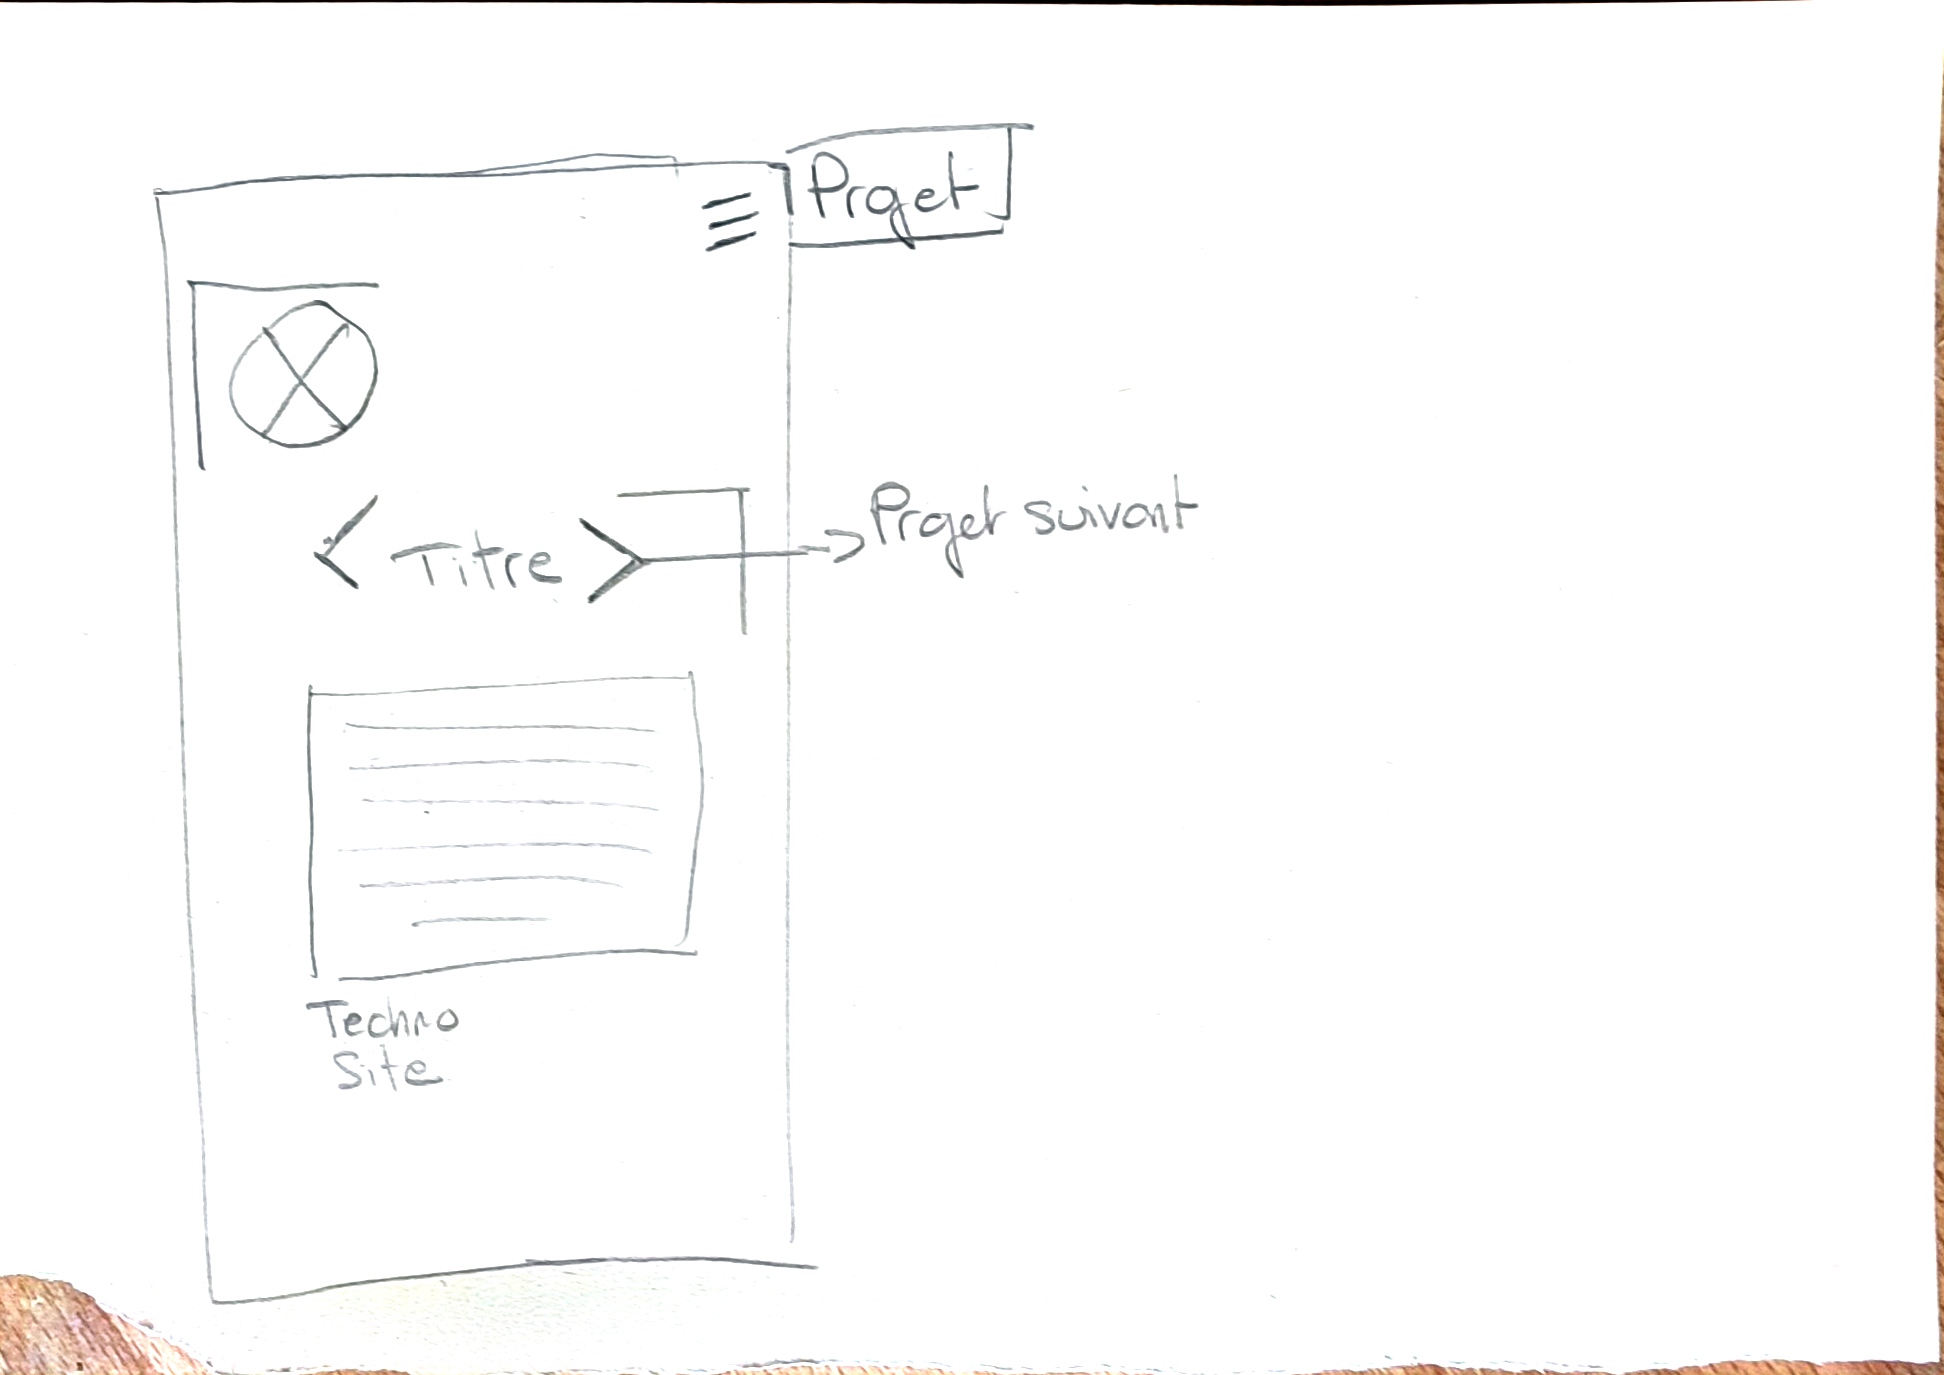 Projet
< Titre >
Projet suivant
Techno
Site